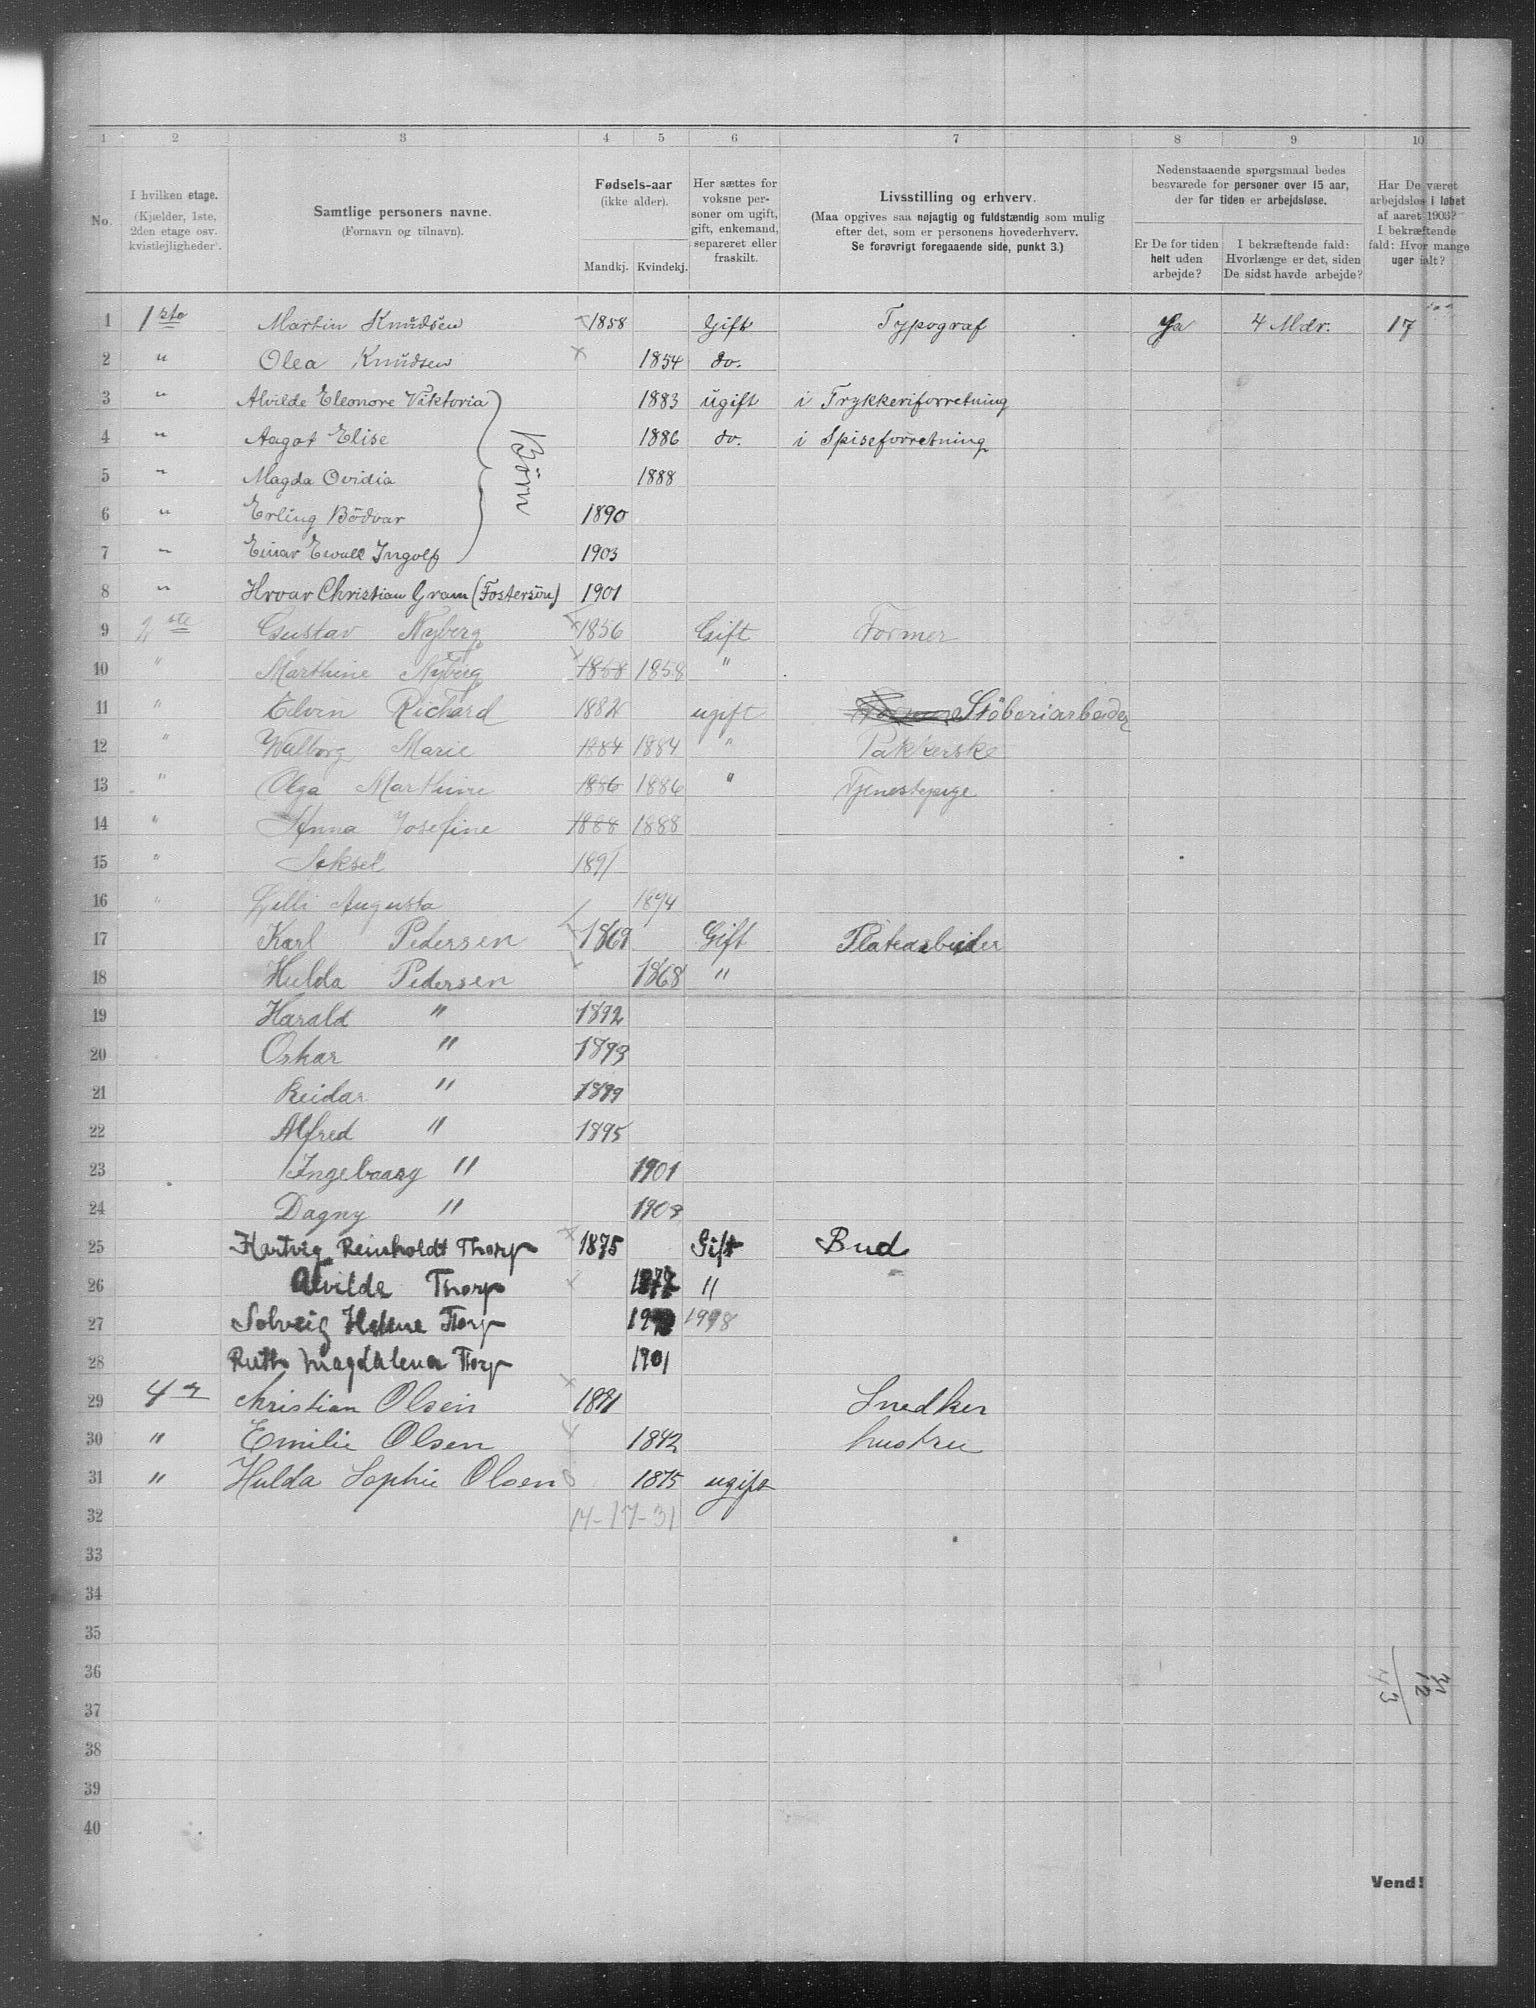 1 2 3 4 5 6 7 8 9 10
No.
I hvilken etage.
(Kjælder, 1ste,
2den etage osv.
kvistlejligheder).
Samtlige personers navne.
(Fornavn og tilnavn).
Fødsels-aar
(ikke alder).
Mandkj. Kvindekj.
Her sættes for
voksne per-
soner om ugift,
gift, enkemand,
separeret eller
fraskilt.
Livsstilling og erhverv.
(Maa opgives saa nøjagtig og fuldstændig som mulig
efter det, som er personens hovederhverv.
Se forøvrigt foregaaende side, punkt 3.)
Nedenstaaende spørgsmaal bedes
besvarede for personer over 15 aar,
der for tiden er arbejdsløse.
Er De for tiden
helt uden
arbejde?
I bekræftende fald:
Hvorlænge er det, siden
De sidst havde arbejde?
Har De været
arbejdsløs i løbet
af aaret 1903?
I bekræftende
fald: Hvor mange
uger ialt?
1 1ste Martin Knudsen 1858 Gift Typograf Ja 4 Mdr. 17
2 " Olea Knudsen 1854 do.
3 " Alvilde Eleonore Viktoria 1883 ugift i Trykkeriforretning
4 " Aagot Elise 1886 do. i Spiseforretning
5 " Magda Ovidia 1888
Börn
6 " Erling Bödvar 1890
7 " Einar Ewald Ingolf 1903
8 " Hroar Christian Gram (Fostersön) 1901
9 2ste Gustav Nyberg 1856 Gift Former
10 " Marthine Nyberg 1858 1858 "
11 " Edvin Richard 1882 ugift Stöberiarbeder
12 " Walborg Marie 1884 1884 " Pakkerske
13 " Olga Marthine 1886 1886 " Tjenestepige
14 " Anna Josefine 1888 1888
15 " Aksel 1891
16 " Lilli Augusta 1894
17 Karl Pedersen 1869 Gift Platearbeider
18 Hulda Pedersen 1868 "
19 Harald " 1892
20 Oskar " 1893
21 Reidar " 1899
22 Alfred " 1895
23 Ingeboarg " 1901
24 Dagny " 1903
25 Hartvig Reinholdt Thorp 1875 Gift Bud
26 Alvilde Thorp 1877 "
27 Solveig Helene Torp 1998
28 Ruth Magdalena Torp 1901
29 4 Christian Olsen 1841 Snedker
30 " Emilie Olsen 1842 hustru
31 " Hulda Sophie Olsen 1875 ugift
32 14-17-31
33
34
35
36
37
38
39
40
31
12
43
Vend!